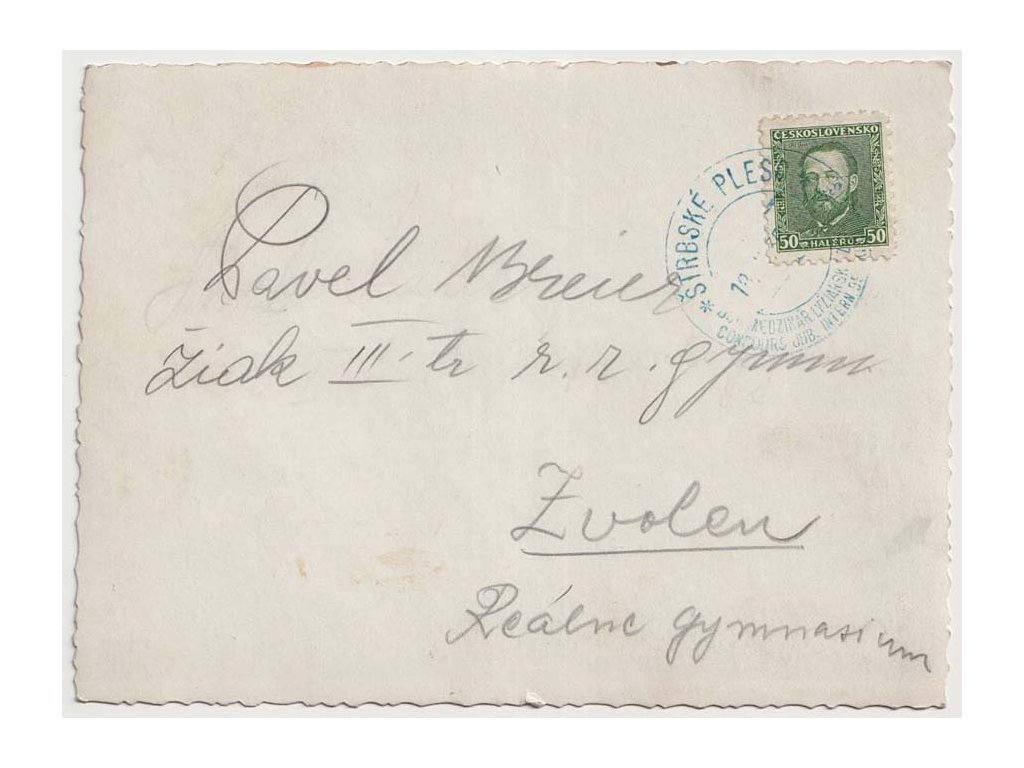 ČESKOSLOVENSKO
50 HALÉŘŮ 50
* ŠTRBSKÉ PLESO
MEDZINÁR. LYŽIARSK
CONCOURS JUB. INTERN. DE
Pavel Breier
Žiak III. tr r. r. gymn
Zvolen
Reálne gymnasium